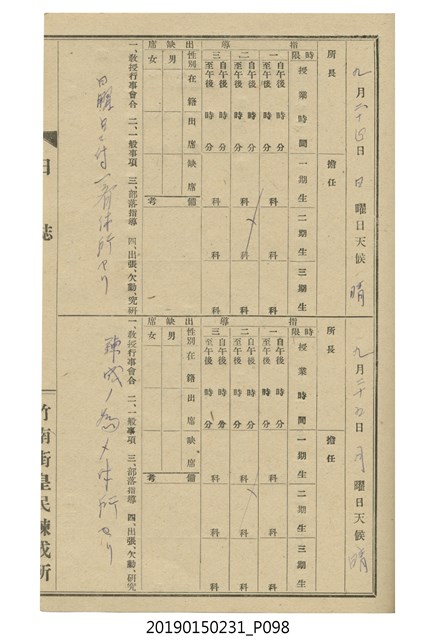 九月二十四日 日曜日天候 晴
所長 擔任
時限 授業時間 一期生 二期生 三期生
指導
一 自午後 時 分 至午後 時 分 科 科 科
二 自午後 時 分 至午後 時 分 科 科 科
三 自午後 時 分 至午後 時 分 科 科 科
出缺席
性別 在籍 出席 缺席 備考
男
女
一、教授行事會合 二、一般事項 三、部落指導 四、出張、欠勤、研究
日曜日ニ付一齊休所セリ
九月二十五日 月曜日天候 晴
所長 擔任
時限 授業時間 一期生 二期生 三期生
指導
一 自午後 時 分 至午後 時 分 科 科 科
二 自午後 時 分 至午後 時 分 科 科 科
三 自午後 時 分 至午後 時 分 科 科 科
出缺席
性別 在籍 出席 缺席 備考
男
女
一、教授行事會合 二、一般事項 三、部落指導 四、出張、欠勤、研究
練成ノ為メ休所セリ
日誌
竹南街皇民練成所
20190150231_P098